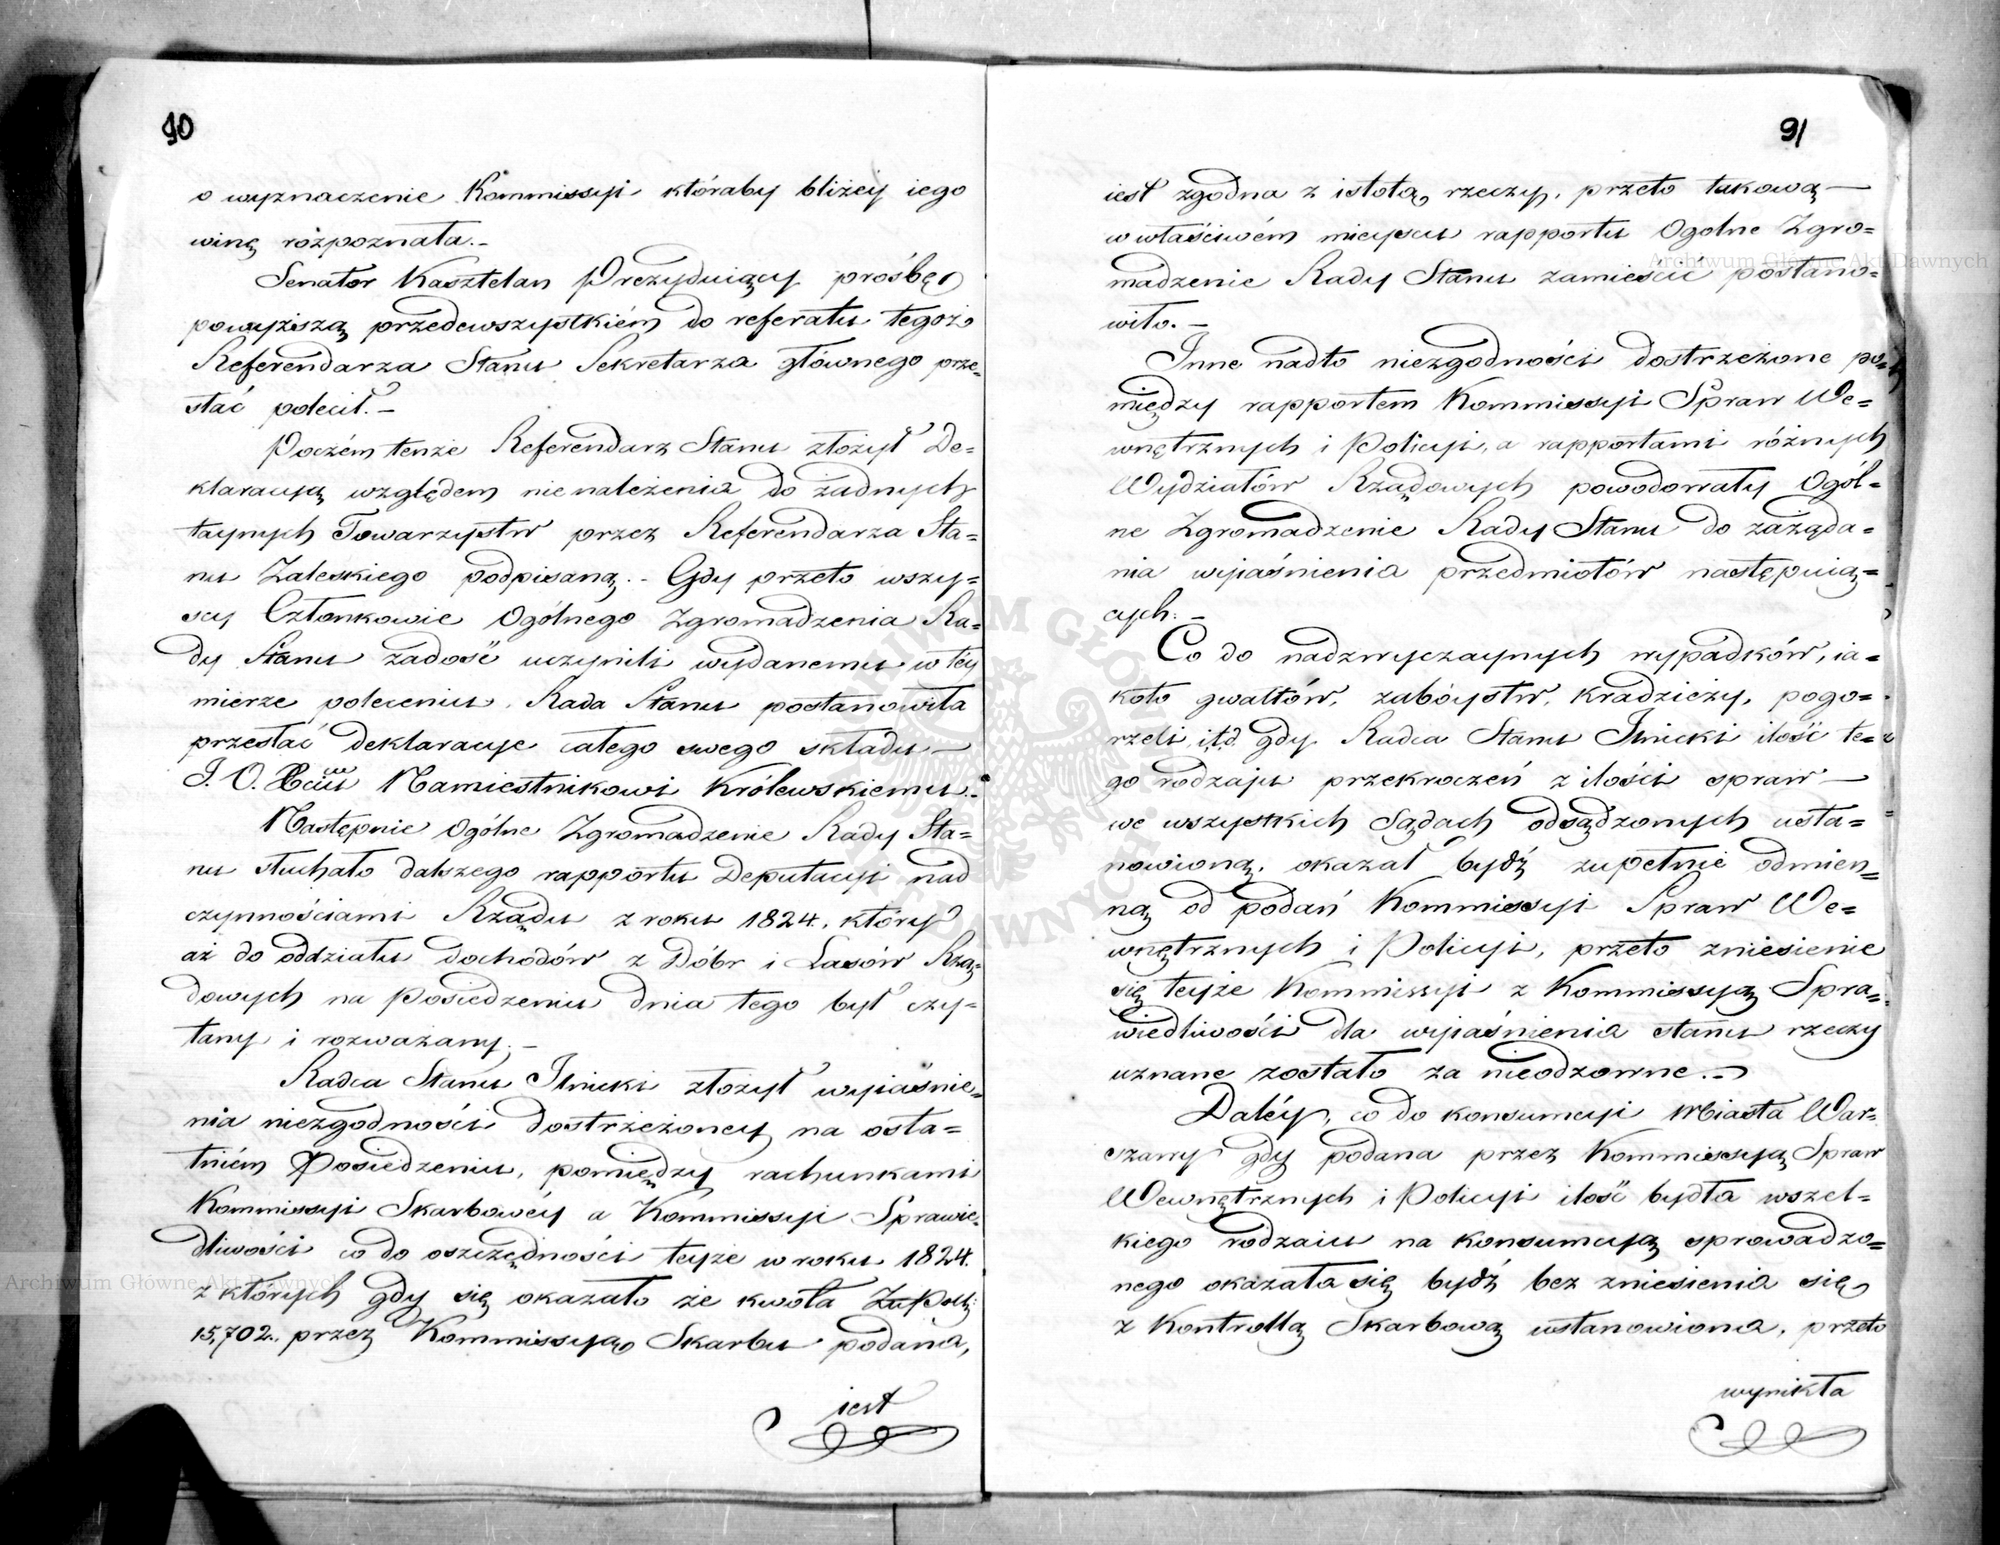 90
o wyznaczenie Kommissyi któraby bliżey iego
winę rozpoznała.–
Senator Kasztelan Prezyduiący prośbę
powyższą przedewszystkiém do referatu tegoż
Referendarza Stanu Sekretarza głównego prze=
słać polecił.–
Poczém tenże Referendarz Stanu złożył De=
klaracyą względem nienależenia do żadnych
taynych Towarzystw przez Referendarza Sta=
nu Zaleskiego podpisaną.– Gdy przeto wszy=
scy Członkowie Ogólnego Zgromadzenia Ra=
dy Stanu zadość uczynili wydanemu w téy
mierze poleceniu, Rada Stanu postanowiła
przesłać deklaracye całego swego składu –
J. O. Xciu Namiestnikowi Królewskiemu.–
Następnie Ogólne Zgromadzenie Rady Sta=
nu słuchało dalszego rapportu Deputacyi nad
czynnościami Rządu z roku 1824., który
aż do oddziału dochodów z Dóbr i Lasów Rzą=
dowych na Posiedzeniu dnia tego był czy=
tany i rozważany.–
Radca Stanu Ilnicki złożył wyiaśnie=
nia niezgodności dostrzeżoney na osta=
tniém Posiedzeniu, pomiędzy rachunkami
Kommissyi Skarbowéy a Kommissyi Sprawie=
dliwości co do oszczędności teyże w roku 1824.
z których gdy się okazało że kwota Zł Pol:
15,702., przez Kommissyą Skarbu podana,
iest
91
iest zgodna z istotą rzeczy, przeto takową –
w właściwém mieyscu rapportu Ogólne Zgro=
madzenie Rady Stanu zamieścić postano=
wiło.–
Inne nadto niezgodności dostrzeżone po=
między rapportem Kommissyi Spraw We=
wnętrznych i Policyi, a rapportami różnych
Wydziałów Rządowych powodowały Ogól=
ne Zgromadzenie Rady Stanu do zażąda=
nia wyiaśnienia przedmiotów następuią=
cych:–
Co do nadzwyczaynych wypadków, ia=
koto gwałtów, zabóystw, kradzieży, pogo=
rzeli, i,t,d. gdy Radca Stanu Ilnicki ilość te=
go rodzaju przekroczeń z ilości spraw –
we wszystkich Sądach odsądzonych usta=
nowioną, okazał bydź zupełnie odmien=
ną od podań Kommissyi Spraw We=
wnętrznych i Policyi, przeto zniesienie
się teyże Kommissyi z Kommissyą Spra=
wiedliwości dla wyiaśnienia stanu rzeczy
uznane zostało za nieodzowne.–
Daléy, co do konsumcyi Miasta War=
szawy gdy podana przez Kommissyą Spraw
Wewnętrznych i Policyi ilość bydła wszel=
kiego rodzaiu na konsumcyą sprowadzo=
nego okazała się bydź bez zniesienia się
z Kontrollą Skarbową ustanowiona, przeto
wynikła
Archiwum Główne Akt Dawnych
Archiwum Główne Akt Dawnych
ARCHIWUM GŁÓWNE AKT DAWNYCH